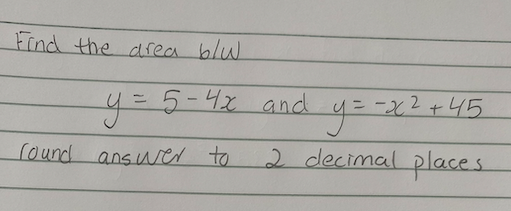 Find the area b/w
y = 5-4x and y = -x² + 45
round answer to 2 decimal places